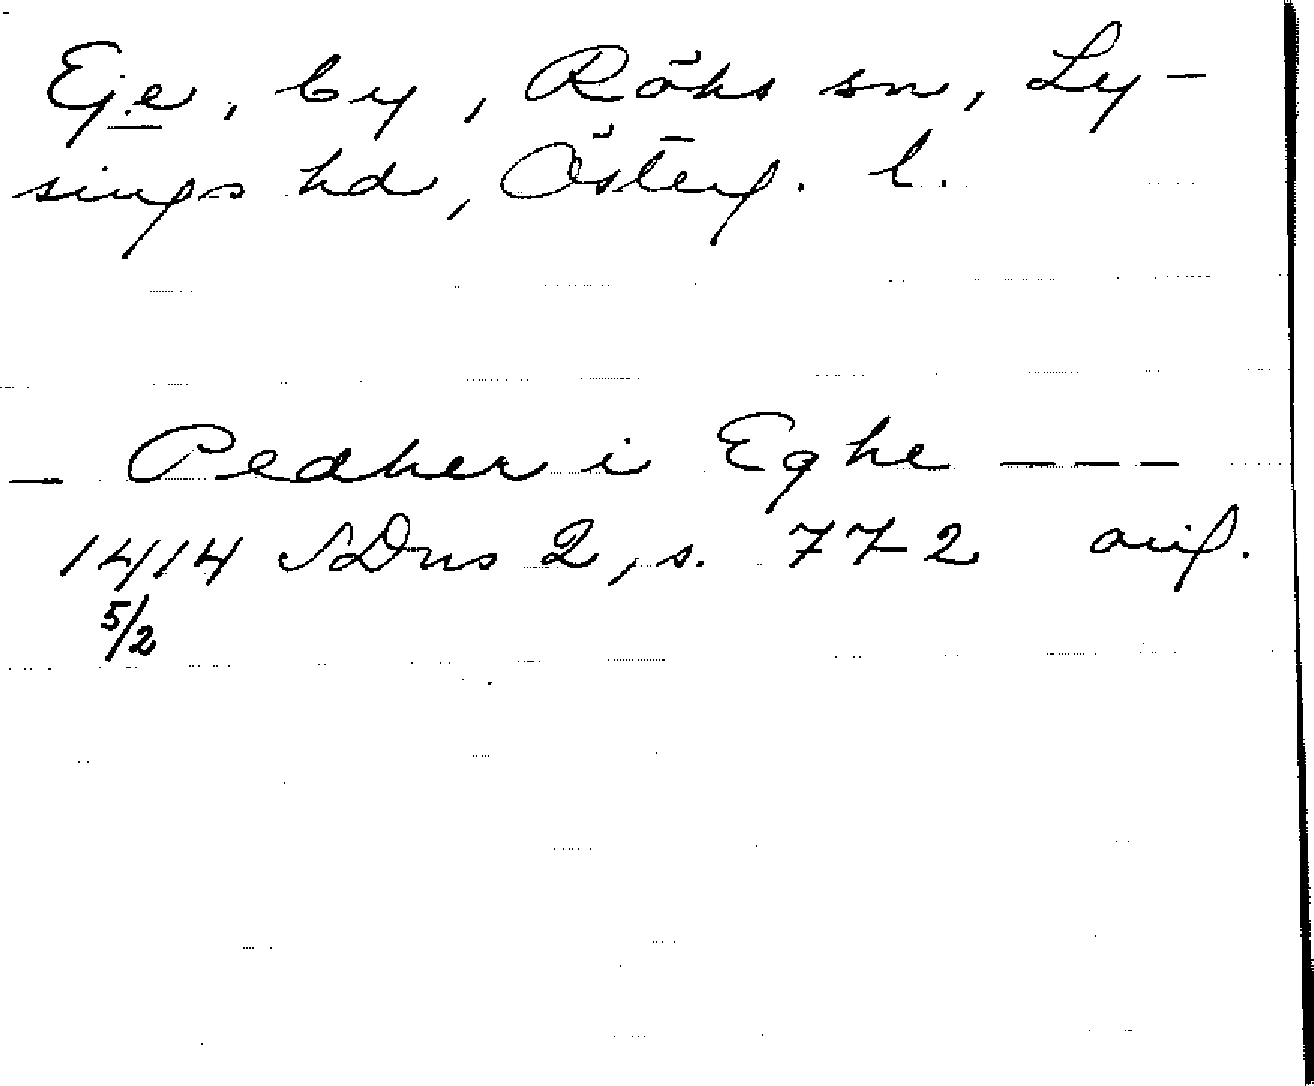 Eje, by, Röks sn, Ly-
sings hd, Österg. l.
— Pedher i Eghe ---
1414 SDns 2, s. 772 orig.
5/2